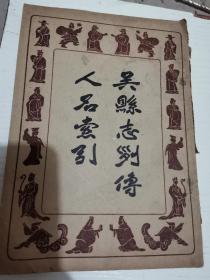 吳縣志列傳
人名索引